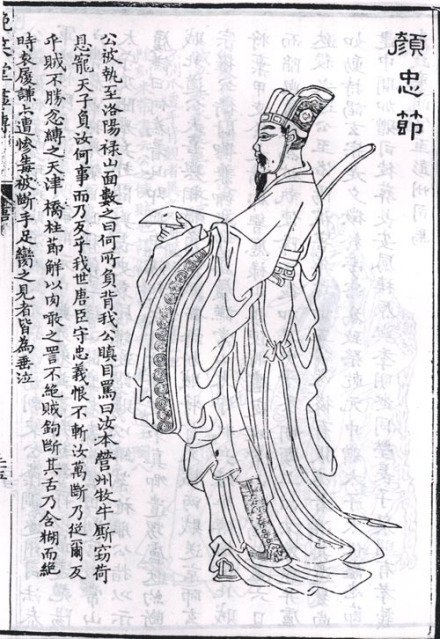 顏忠節
公被執至洛陽祿山面數之曰何所負背我公瞋目罵曰汝本營州牧牛厮窃荷
恩寵天子負汝何事而乃反乎我世唐臣守忠義恨不斬汝萬斷乃從爾反
乎賊不勝忿縛之天津橋柱節解以肉噉之詈不絕賊鉤斷其舌乃含糊而絕
時袁履謙亦遭慘毒被斷手足臠之見者皆為垂泣
晚笑堂畫傳